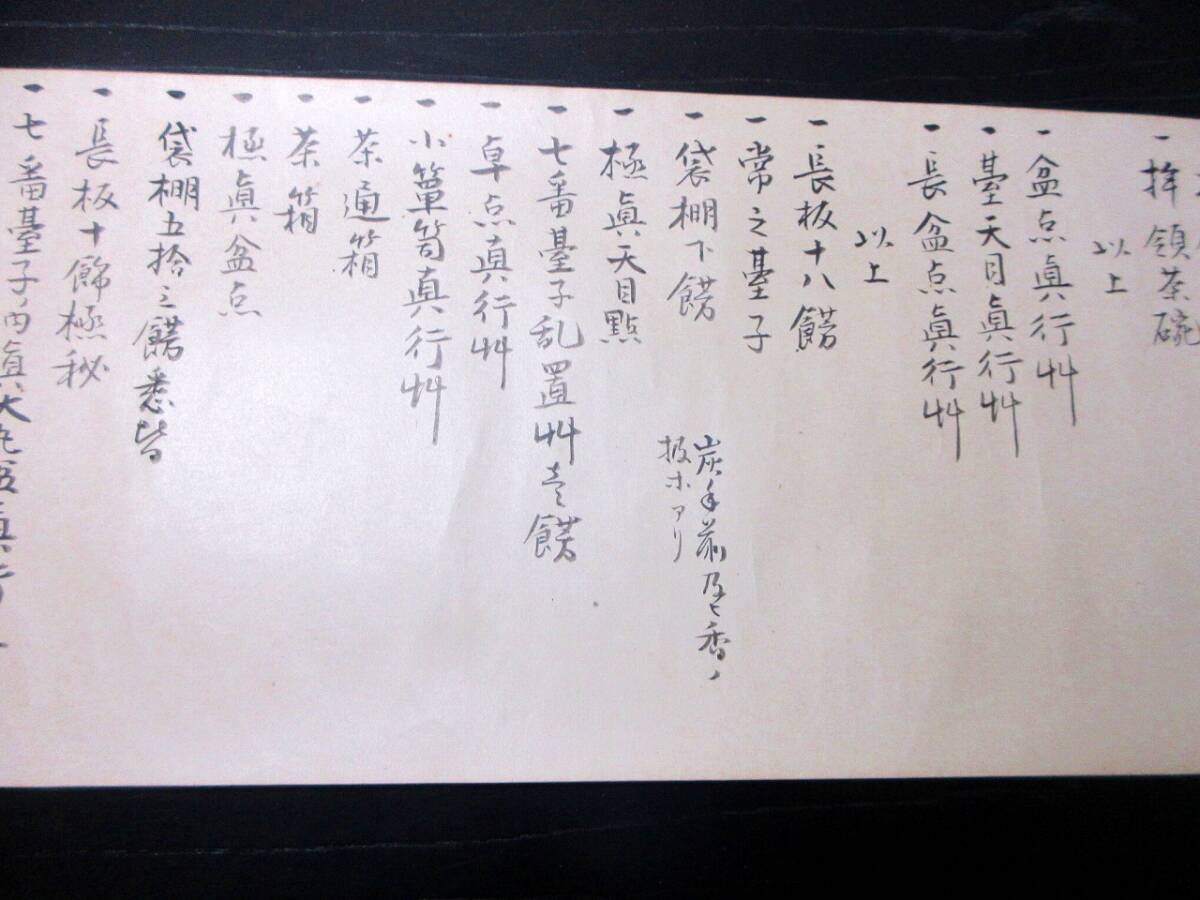 一 拝領茶碗
以上
一 盆点眞行艸
一 臺天目眞行艸
一 長盆点眞行艸
以上
一 長板十八餝
一 常之臺子
一 袋棚下餝
炭手前及七香ノ
扱ホアリ
一 極眞天目點
一 七番臺子乱置艸壱餝
一 卓点真行艸
一 小簞笥真行艸
一 茶通箱
一 茶箱
一 極眞盆点
一 袋棚五拾之餝悉皆
一 長板十飾極秘
一 七番臺子内眞